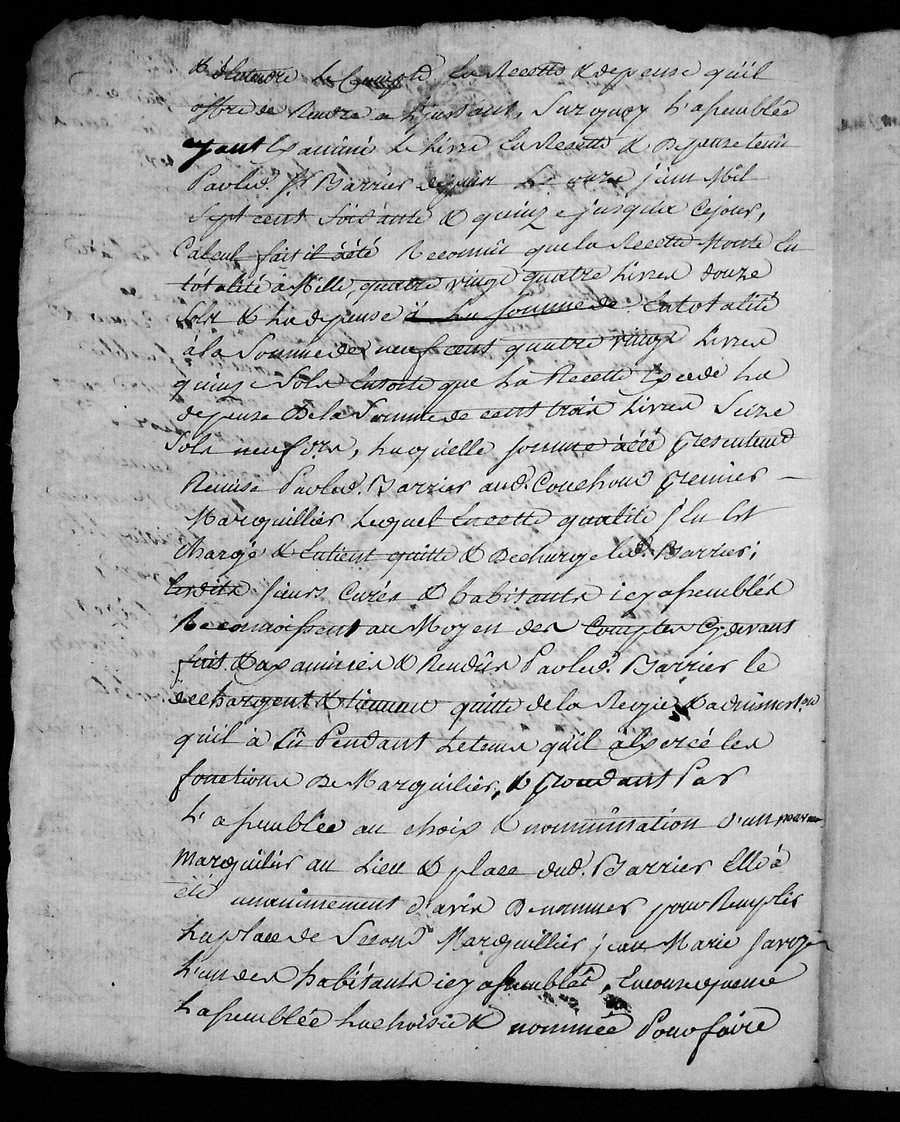 & d'entendre le Compte En Recette & depense qu'il
offre de Rendre a L'instant, Surquoy L'assemblée
ayant Examiné Le Livre En Recette & Depense tenû
Parled. Sr Barrier depuis Le onze juin Mil
Sept cent Soixante & quinze jusqu'à Cejour,
Calcul fait il àété Reconnût que la Recette Monte En
totalité à Mille quatre vingt quatre Livres douze
Sols & La depense à La somme de Entotalité
à la Somme de neuf cent quatre vingt Livres
quinze Sols Ensorte que La Recette Excede La
depense De la Somme de cent trois Livres Seize
Sols neuf drs, Laquelle somme àété presentemt
Remise Parled. Barrier aud. Couchoud premier
Marguillier Lequel En cette qualité s'En Est
chargé & Entient quitte & Decharge led. Barrier;
Lesdits sieurs Curés & habitants icy assemblés
Reconnoissent au Moyen des Comptes Cydevant
fait & examinés & Rendûs Parled. Barrier le
dechargent & tiennent quitte de la Regie & administ.on
qu'il à Eû Pendant Letems qu'il àExercé les
fonctions De Marguilier, & procedant Par
L'assemblée au choix & nommination d'un
Marguilier au Lieu & place dud. Barrier Elle à
été unanimement d'avis De nommer pour Remplir
La place de Second Marguillier jean Marie
L'un des habitants icy assemblés, En consequence
L'assemblée La choisie & nommée Pour faire